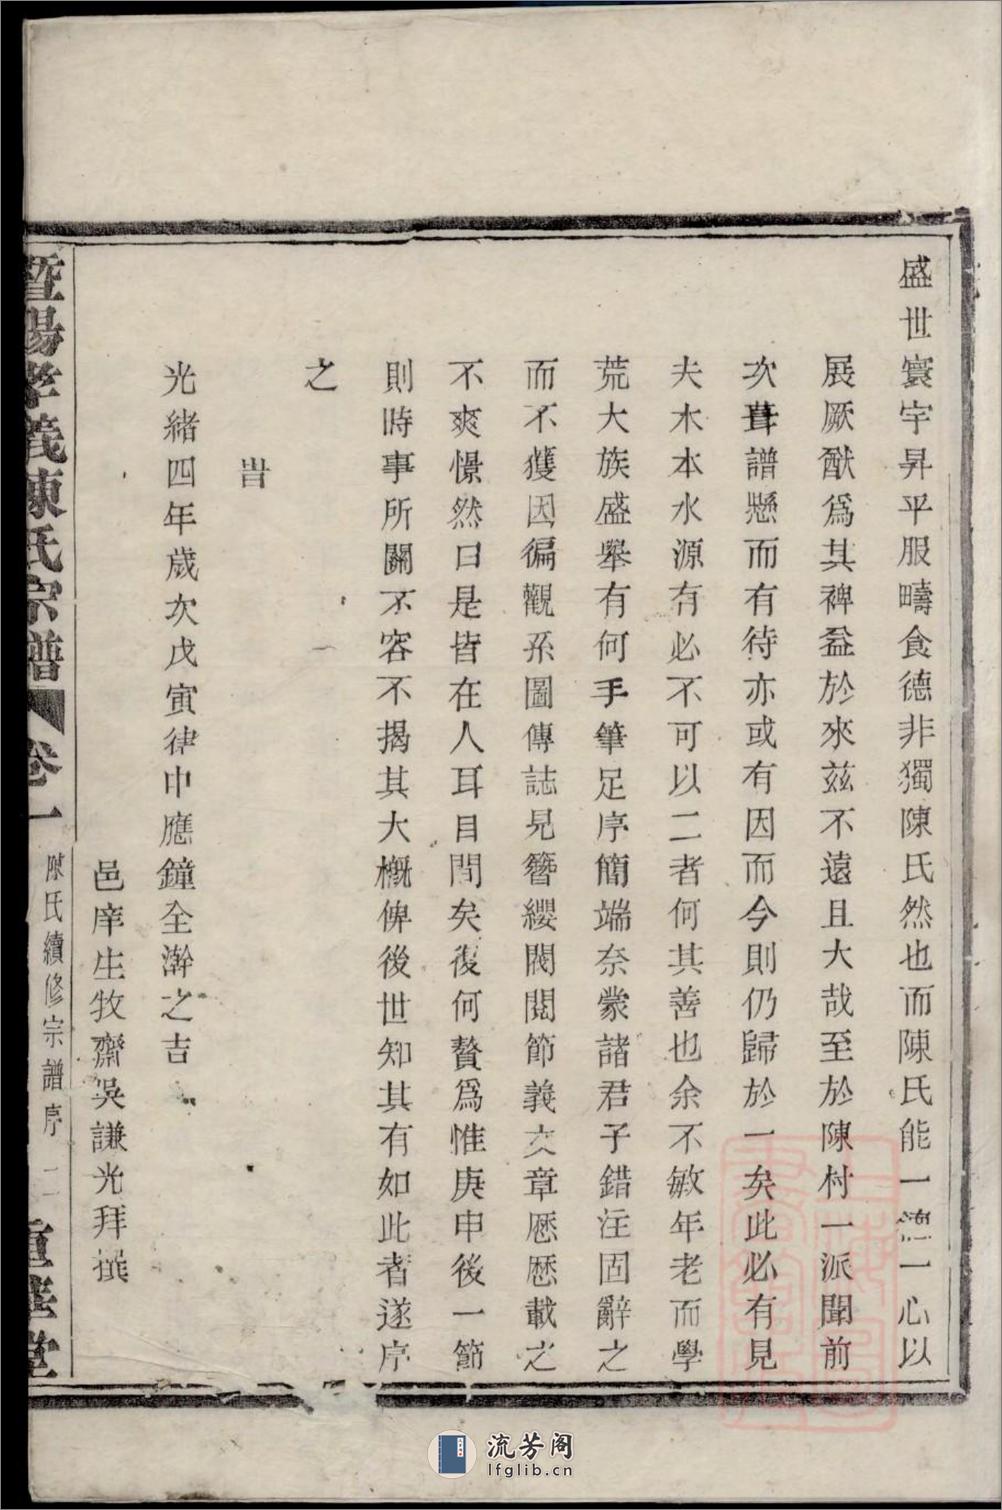 盛世寰宇昇平服疇食德非獨陳氏然也而陳氏能一 一心以
展厥猷爲其裨益於來茲不遠且大哉至於陳村一派聞前
次葺譜懸而有待亦或有因而今則仍歸於一矣此必有見
夫木本水源有必不可以二者何其善也余不敏年老而學
荒大族盛舉有何手筆足序簡端奈蒙諸君子錯注固辭之
而不獲因徧觀系圖傳誌見簪纓閥閱節義文章歷歷載之
不爽憬然曰是皆在人耳目間矣復何贅爲惟庚申後一節
則時事所關不容不揭其大槪俾後世知其有如此者遂序
之
旹
光緒四年歲次戊寅律中應鐘全澣之吉
邑庠生牧齋吳謙光拜撰
暨陽孝義陳氏宗譜 卷一 陳氏續修宗譜序 二 重華堂
流芳阁
lfglib.cn